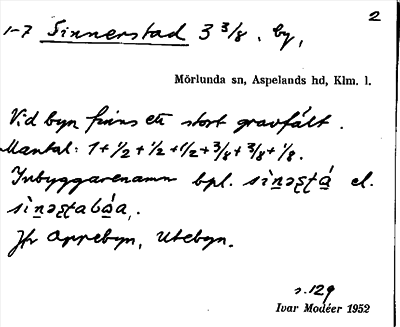 2
1-7 Sinnerstad 3 3/8. by,
Mörlunda sn, Aspelands hd, Klm. l.
Vid byn finns ett stort gravfält.
Mantal: 1 + 1/2 + 1/2 + 1/2 + 3/8 + 3/8 + 1/8.
Inbyggarenamn bpl. el.
Jfr Oppebyn, Utebyn.
s. 129
Ivar Modéer 1952